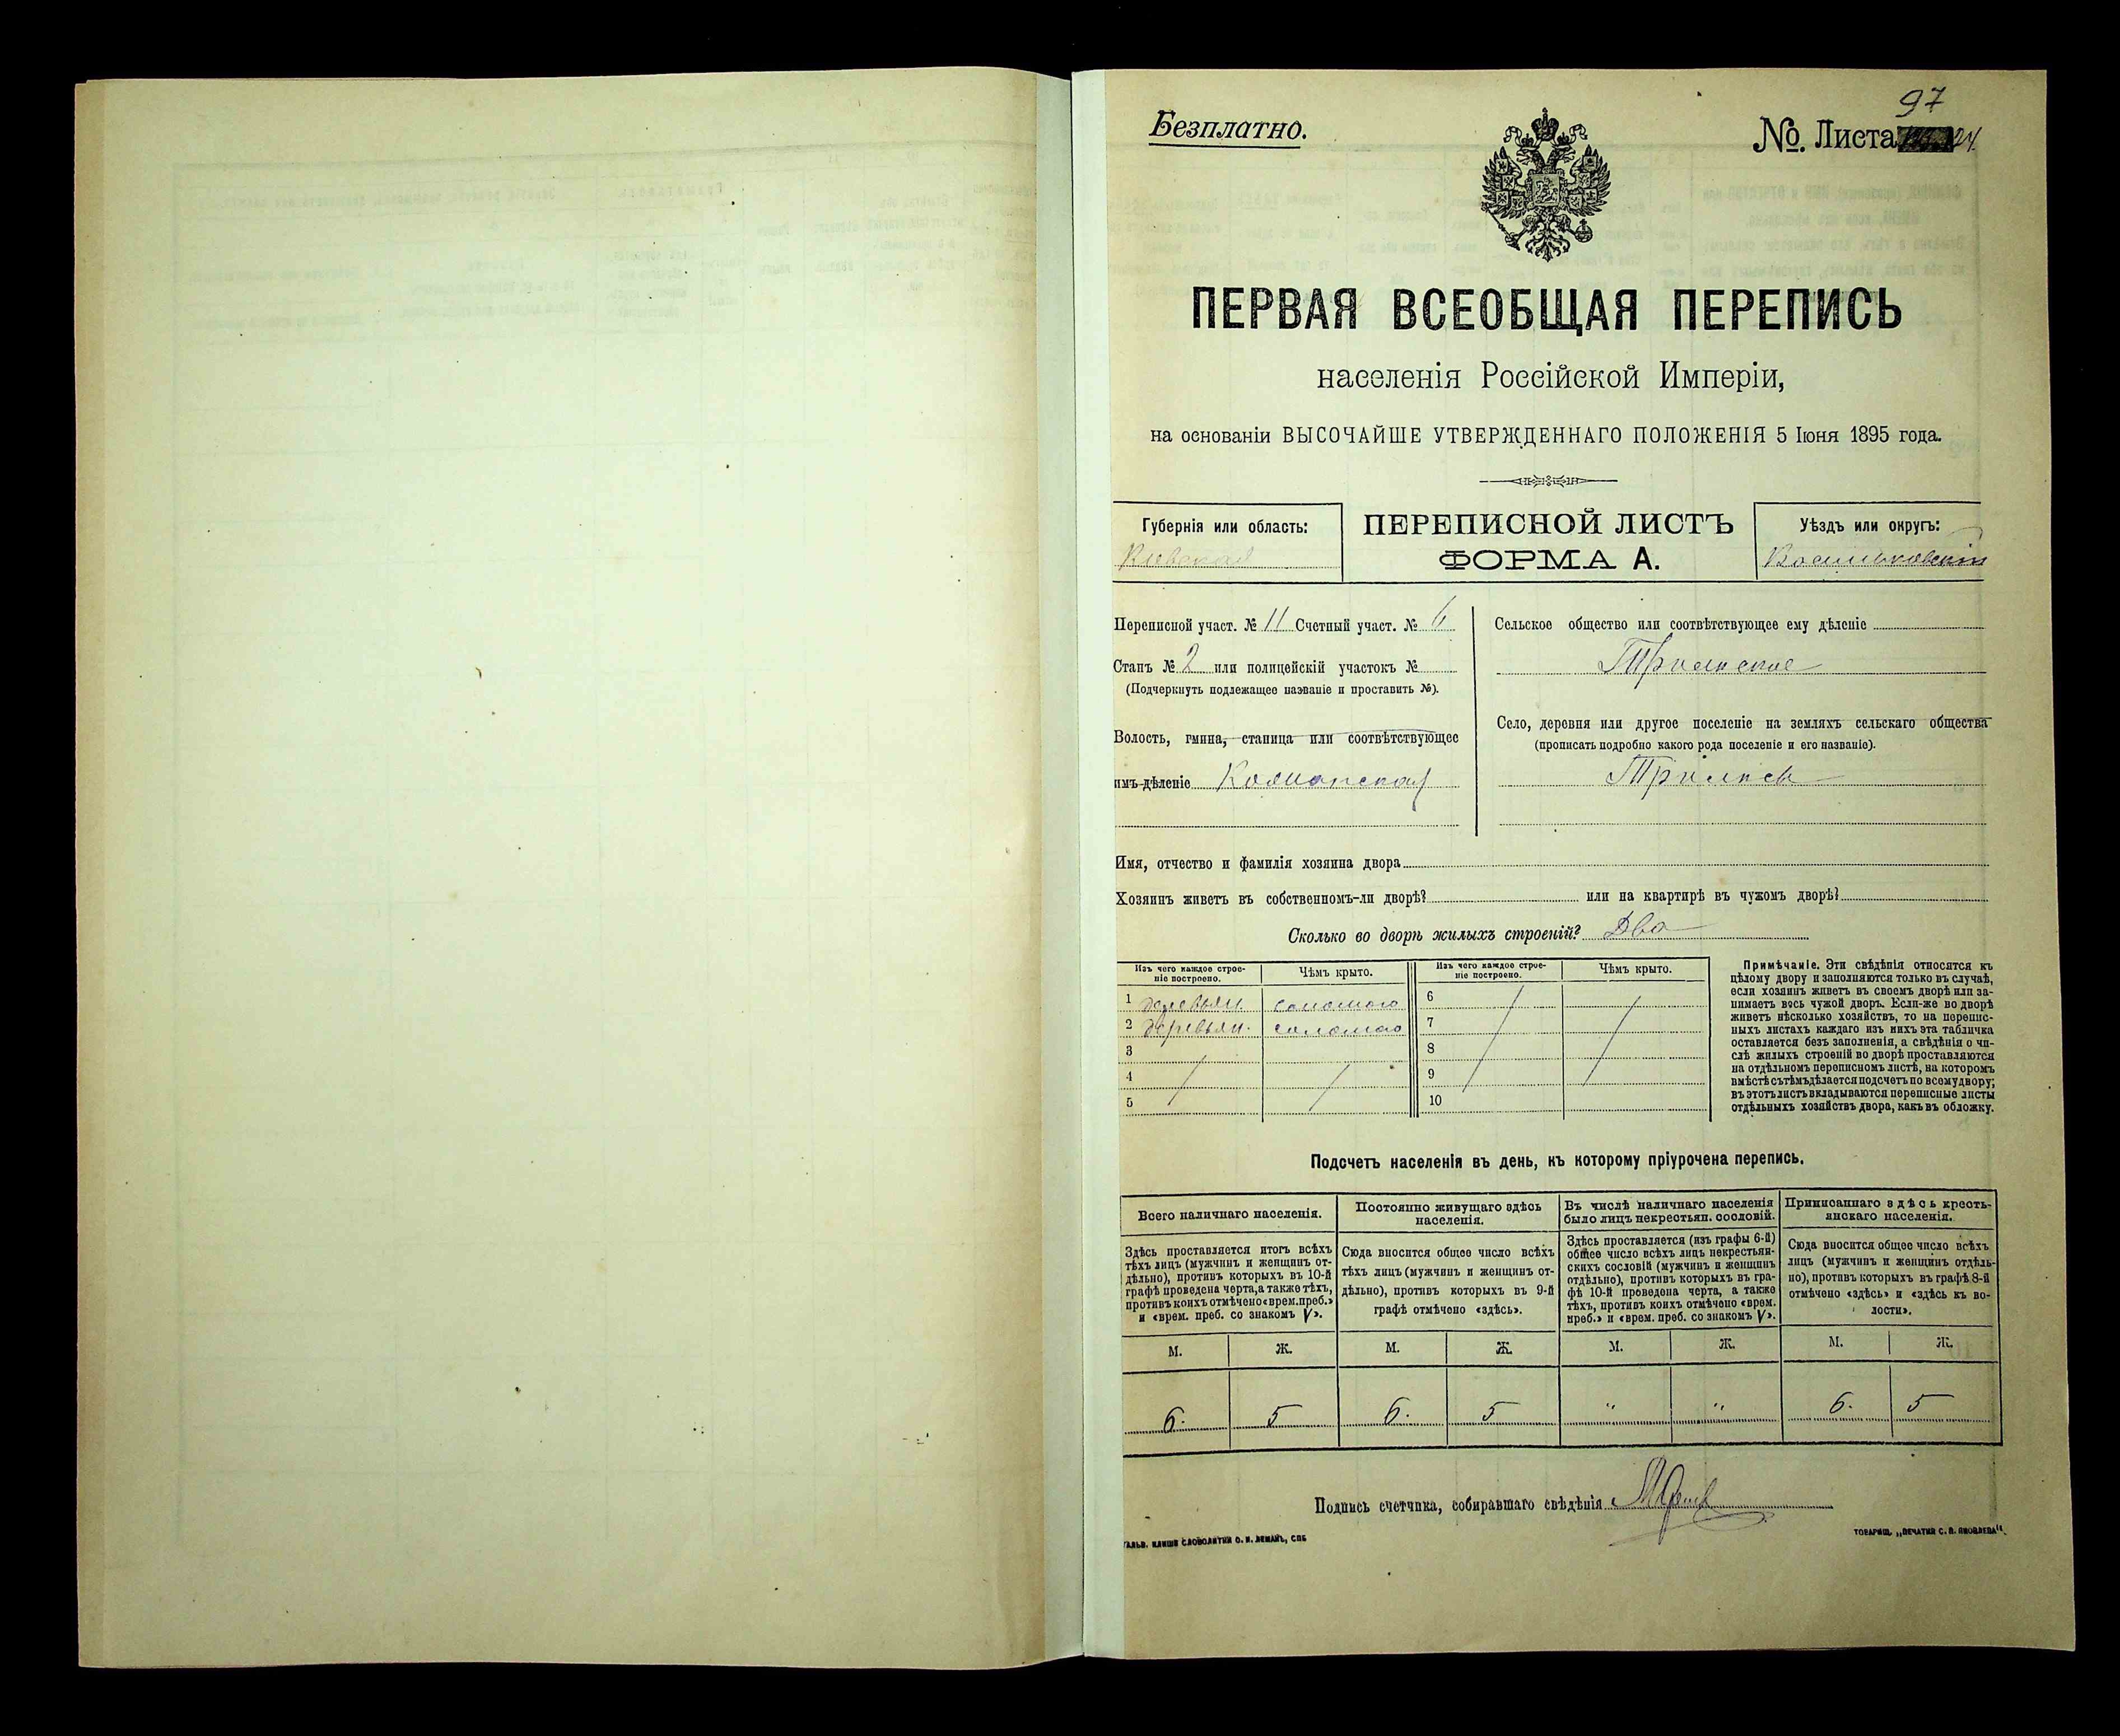 97
Безплатно.
№. Листа 24.
ПЕРВАЯ ВСЕОБЩАЯ ПЕРЕПИСЬ
населенія Россійской Имперіи,
на основаніи ВЫСОЧАЙШЕ УТВЕРЖДЕННАГО ПОЛОЖЕНІЯ 5 Іюня 1895 года.
Губернія или область:
Кіевская
ПЕРЕПИСНОЙ ЛИСТЪ
ФОРМА А.
Уѣздъ или округъ:
Васильковскій
Переписной участ. № 11 Счетный участ. № 6
Станъ № 2 или полицейскій участокъ №
(Подчеркнуть подлежащее названіе и проставить №).
Волость, гмина, станица или соотвѣтствующее
имъ дѣленіе
Сельское общество или соотвѣтствующее ему дѣленіе
Трилиское
Село, деревня или другое поселеніе на земляхъ сельскаго общества
(прописать подробно какого рода поселеніе и его названіе).
Трилиси
Имя, отчество и фамилія хозяина двора
Хозяинъ живетъ въ собственномъ-ли дворѣ? или на квартирѣ въ чужомъ дворѣ?
Сколько во дворѣ жилыхъ строеній? Два
Изъ чего каждое строе-
ніе построено.
Чѣмъ крыто.
Изъ чего каждое строе-
ніе построено.
Чѣмъ крыто.
1 деревян. соломою 6
2 деревян. соломою 7
3 8
4 9
5 10
Примѣчаніе. Эти свѣдѣнія относятся къ
цѣлому двору и заполняются только въ случаѣ,
если хозяинъ живетъ въ своемъ дворѣ или за-
нимаетъ весь чужой дворъ. Если-же во дворѣ
живетъ нѣсколько хозяйствъ, то на перепис-
ныхъ листахъ каждаго изъ нихъ эта табличка
оставляется безъ заполненія, а свѣдѣнія о чи-
слѣ жилыхъ строеній во дворѣ проставляются
на отдѣльномъ переписномъ листѣ, на которомъ
вмѣстѣ съ тѣмъ дѣлается подсчетъ по всему двору;
въ этотъ листъ вкладываются переписные листы
отдѣльныхъ хозяйствъ двора, какъ въ обложку.
Подсчетъ населенія въ день, къ которому пріурочена перепись.
Всего наличнаго населенія.
Здѣсь проставляется итогъ всѣхъ
тѣхъ лицъ (мужчинъ и женщинъ от-
дѣльно), противъ которыхъ въ 10-й
графѣ проведена черта, а также тѣхъ,
противъ коихъ отмѣчено «врем. преб.»
и «врем. преб. со знакомъ V».
Постоянно живущаго здѣсь
населенія.
Сюда вносится общее число всѣхъ
тѣхъ лицъ (мужчинъ и женщинъ от-
дѣльно), противъ которыхъ въ 9-й
графѣ отмѣчено «здѣсь».
Въ числѣ наличнаго населенія
было лицъ некрестьян. сословій.
Здѣсь проставляется (изъ графы 6-й)
общее число всѣхъ лицъ некрестьян-
скихъ сословій (мужчинъ и женщинъ
отдѣльно), противъ которыхъ въ гра-
фѣ 10-й проведена черта, а также
тѣхъ, противъ коихъ отмѣчено «врем.
преб.» и «врем. преб. со знакомъ V».
Приписаннаго здѣсь кресть-
янскаго населенія.
Сюда вносится общее число всѣхъ
лицъ (мужчинъ и женщинъ отдѣль-
но), противъ которыхъ въ графѣ 8-й
отмѣчено «здѣсь» и «здѣсь къ во-
лости».
М. Ж. М. Ж. М. Ж. М. Ж.
6. 5 6. 5 " " 6. 5
Подпись счетчика, собиравшаго свѣдѣнія
ГАЛЬВ. КЛИШЕ СЛОВОЛИТНИ О. И. ЛЕМАНЪ, СПБ
ТОВАРИЩ. „ПЕЧАТНЯ С. П. ЯКОВЛЕВА".